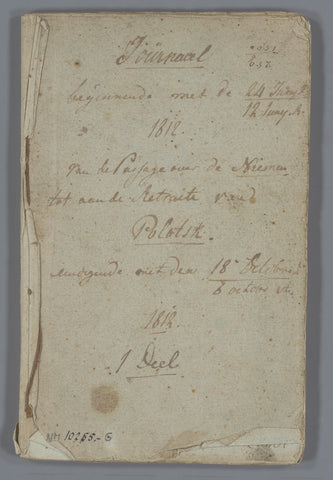 Journael
beginnende met de 24 Juny
12 Juny
1812
van de Passage over de Niemen
tot aan de Retraite van
Polotsk.
met den 18
6 october
1812
1 Deel
NM 10255-G